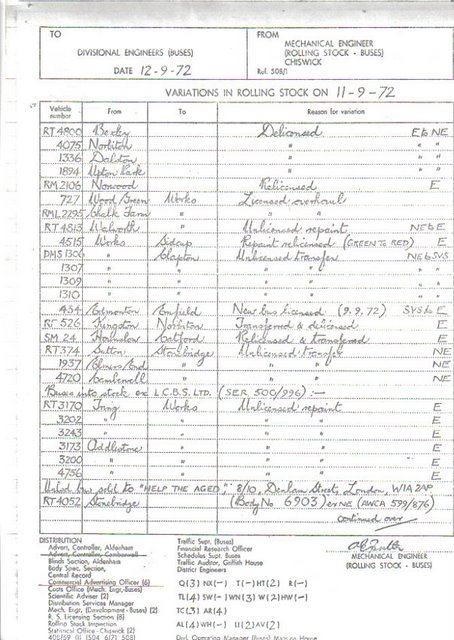 TO
DIVISIONAL ENGINEERS (BUSES)
DATE 12-9-72
FROM
MECHANICAL ENGINEER
(ROLLING STOCK - BUSES)
CHISWICK
Ref. 508/1
VARIATIONS IN ROLLING STOCK ON 11-9-72
Vehicle number From To Reason for variation
RT 4800 Bexley Delicensed E to NE
4075 Norbiton " " "
1336 Dalston " " "
1894 Upton Park " " "
RM 2106 Norwood Relicensed E
727 Wood Green Works Licensed overhaul
RML 2295 Chalk Farm " "
RT 4813 Walworth " Unlicensed repaint NE to E
4515 Works Sidcup Repaint relicensed (GREEN TO RED) E
DMS 1306 " Clapton Unlicensed transfer NE to SVS
1307 " " "
1309 " " "
1310 " " "
454 Edmonton Enfield New bus licensed (9.9.72) SVS to E
RF 526 Kingston Norbiton Transferred & delicensed E
SM 24 Hounslow Catford Relicensed & transferred E
RT 374 Sutton Stonebridge Unlicensed transfer NE
1937 Elmers End " " " NE
4720 Camberwell " " " NE
Buses into stock ex L.C.B.S. LTD. (SER. 500/996) :-
RT 3170 Tring Works Unlicensed repaint E
3202 " " " E
3243 " " " E
3173 Addlestone " " E
3200 " " " E
4756 " " " E
Unlicd bus sold to "HELP THE AGED," 8/10, Denham Street, London, W1A 2AP
RT 4052 Stonebridge (Body No 6903) ex NE (AWCA 599/876)
continued over
DISTRIBUTION
Advert. Controller, Aldenham
Blinds Section, Aldenham
Body Spec. Section,
Central Record
Commercial Advertising Officer (6)
Costs Office (Mech. Engr.-Buses)
Scientific Adviser (2)
Distribution Services Manager
Mech. Engr. (Development - Buses) (2)
R. S. Licensing Section (8)
Rolling Stock Inspection
Statistical Office - Chiswick (2)
Traffic Supt. (Buses)
Financial Research Officer
Schedules Supt. Buses
Traffic Auditor, Griffith House
District Engineers
Q(3) NX(-) T(-) HT(2) R(-)
TL(4) SW(-) WN(3) W(2) HW(-)
TC(3) AR(4)
AL(4) WH(-) U(2) AV(2)
MECHANICAL ENGINEER
(ROLLING STOCK - BUSES)